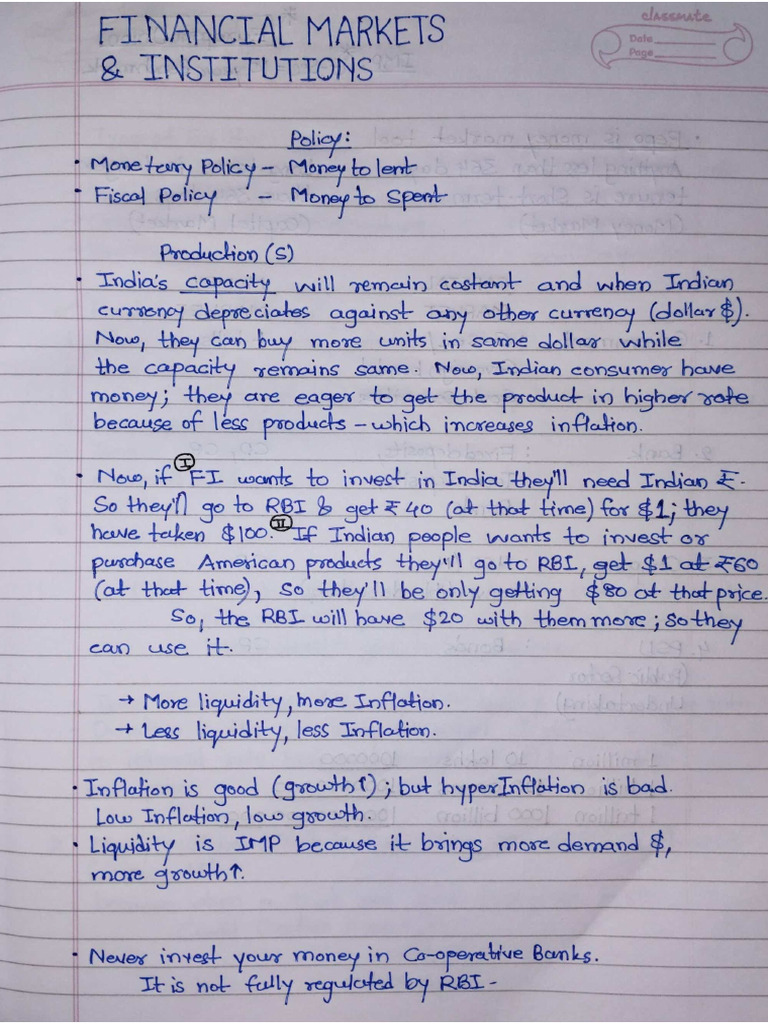 classmate
Date
Page
FINANCIAL MARKETS
& INSTITUTIONS
Policy:
• Monetary Policy - Money to lent
• Fiscal Policy - Money to Spent
Production (s)
• India's capacity will remain costant and when Indian
currency depreciates against any other currency (dollar $).
Now, they can buy more units in same dollar while
the capacity remains same. Now, Indian consumer have
money; they are eager to get the product in higher rate
because of less products - which increases inflation.
• Now, if Ⓘ FI wants to invest in India they'll need Indian ₹.
So they'll go to RBI & get ₹40 (at that time) for $1; they
have taken $100. Ⅱ If Indian people wants to invest or
purchase American products they'll go to RBI, get $1 at ₹60
(at that time), so they'll be only getting $80 at that price.
So, the RBI will have $20 with them more; so they
can use it.
→ More liquidity, more Inflation.
→ Less liquidity, less Inflation.
• Inflation is good (growth↑); but hyperInflation is bad.
Low Inflation, low growth.
• Liquidity is IMP because it brings more demand $,
more growth↑.
• Never invest your money in Co-operative Banks.
It is not fully regulated by RBI -